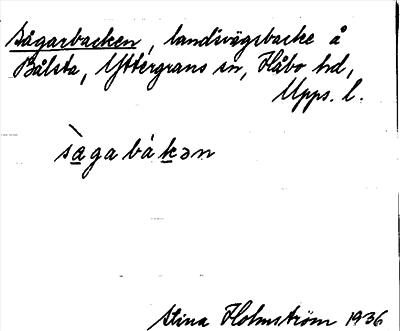 Sågarbacken, landsvägsbacke å
Bålsta, Yttergrans sn, Håbo hd,
Upps. l.
sàgabákən
Stina Holmström 1936